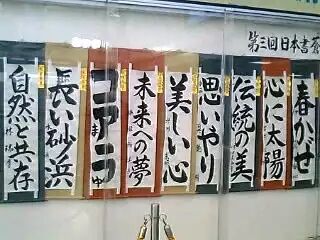 第三回日本書
春かぜ
心に太陽
伝統の美
思いやり
美しい心
未来への夢
コアラ
長い砂浜
自然と共存